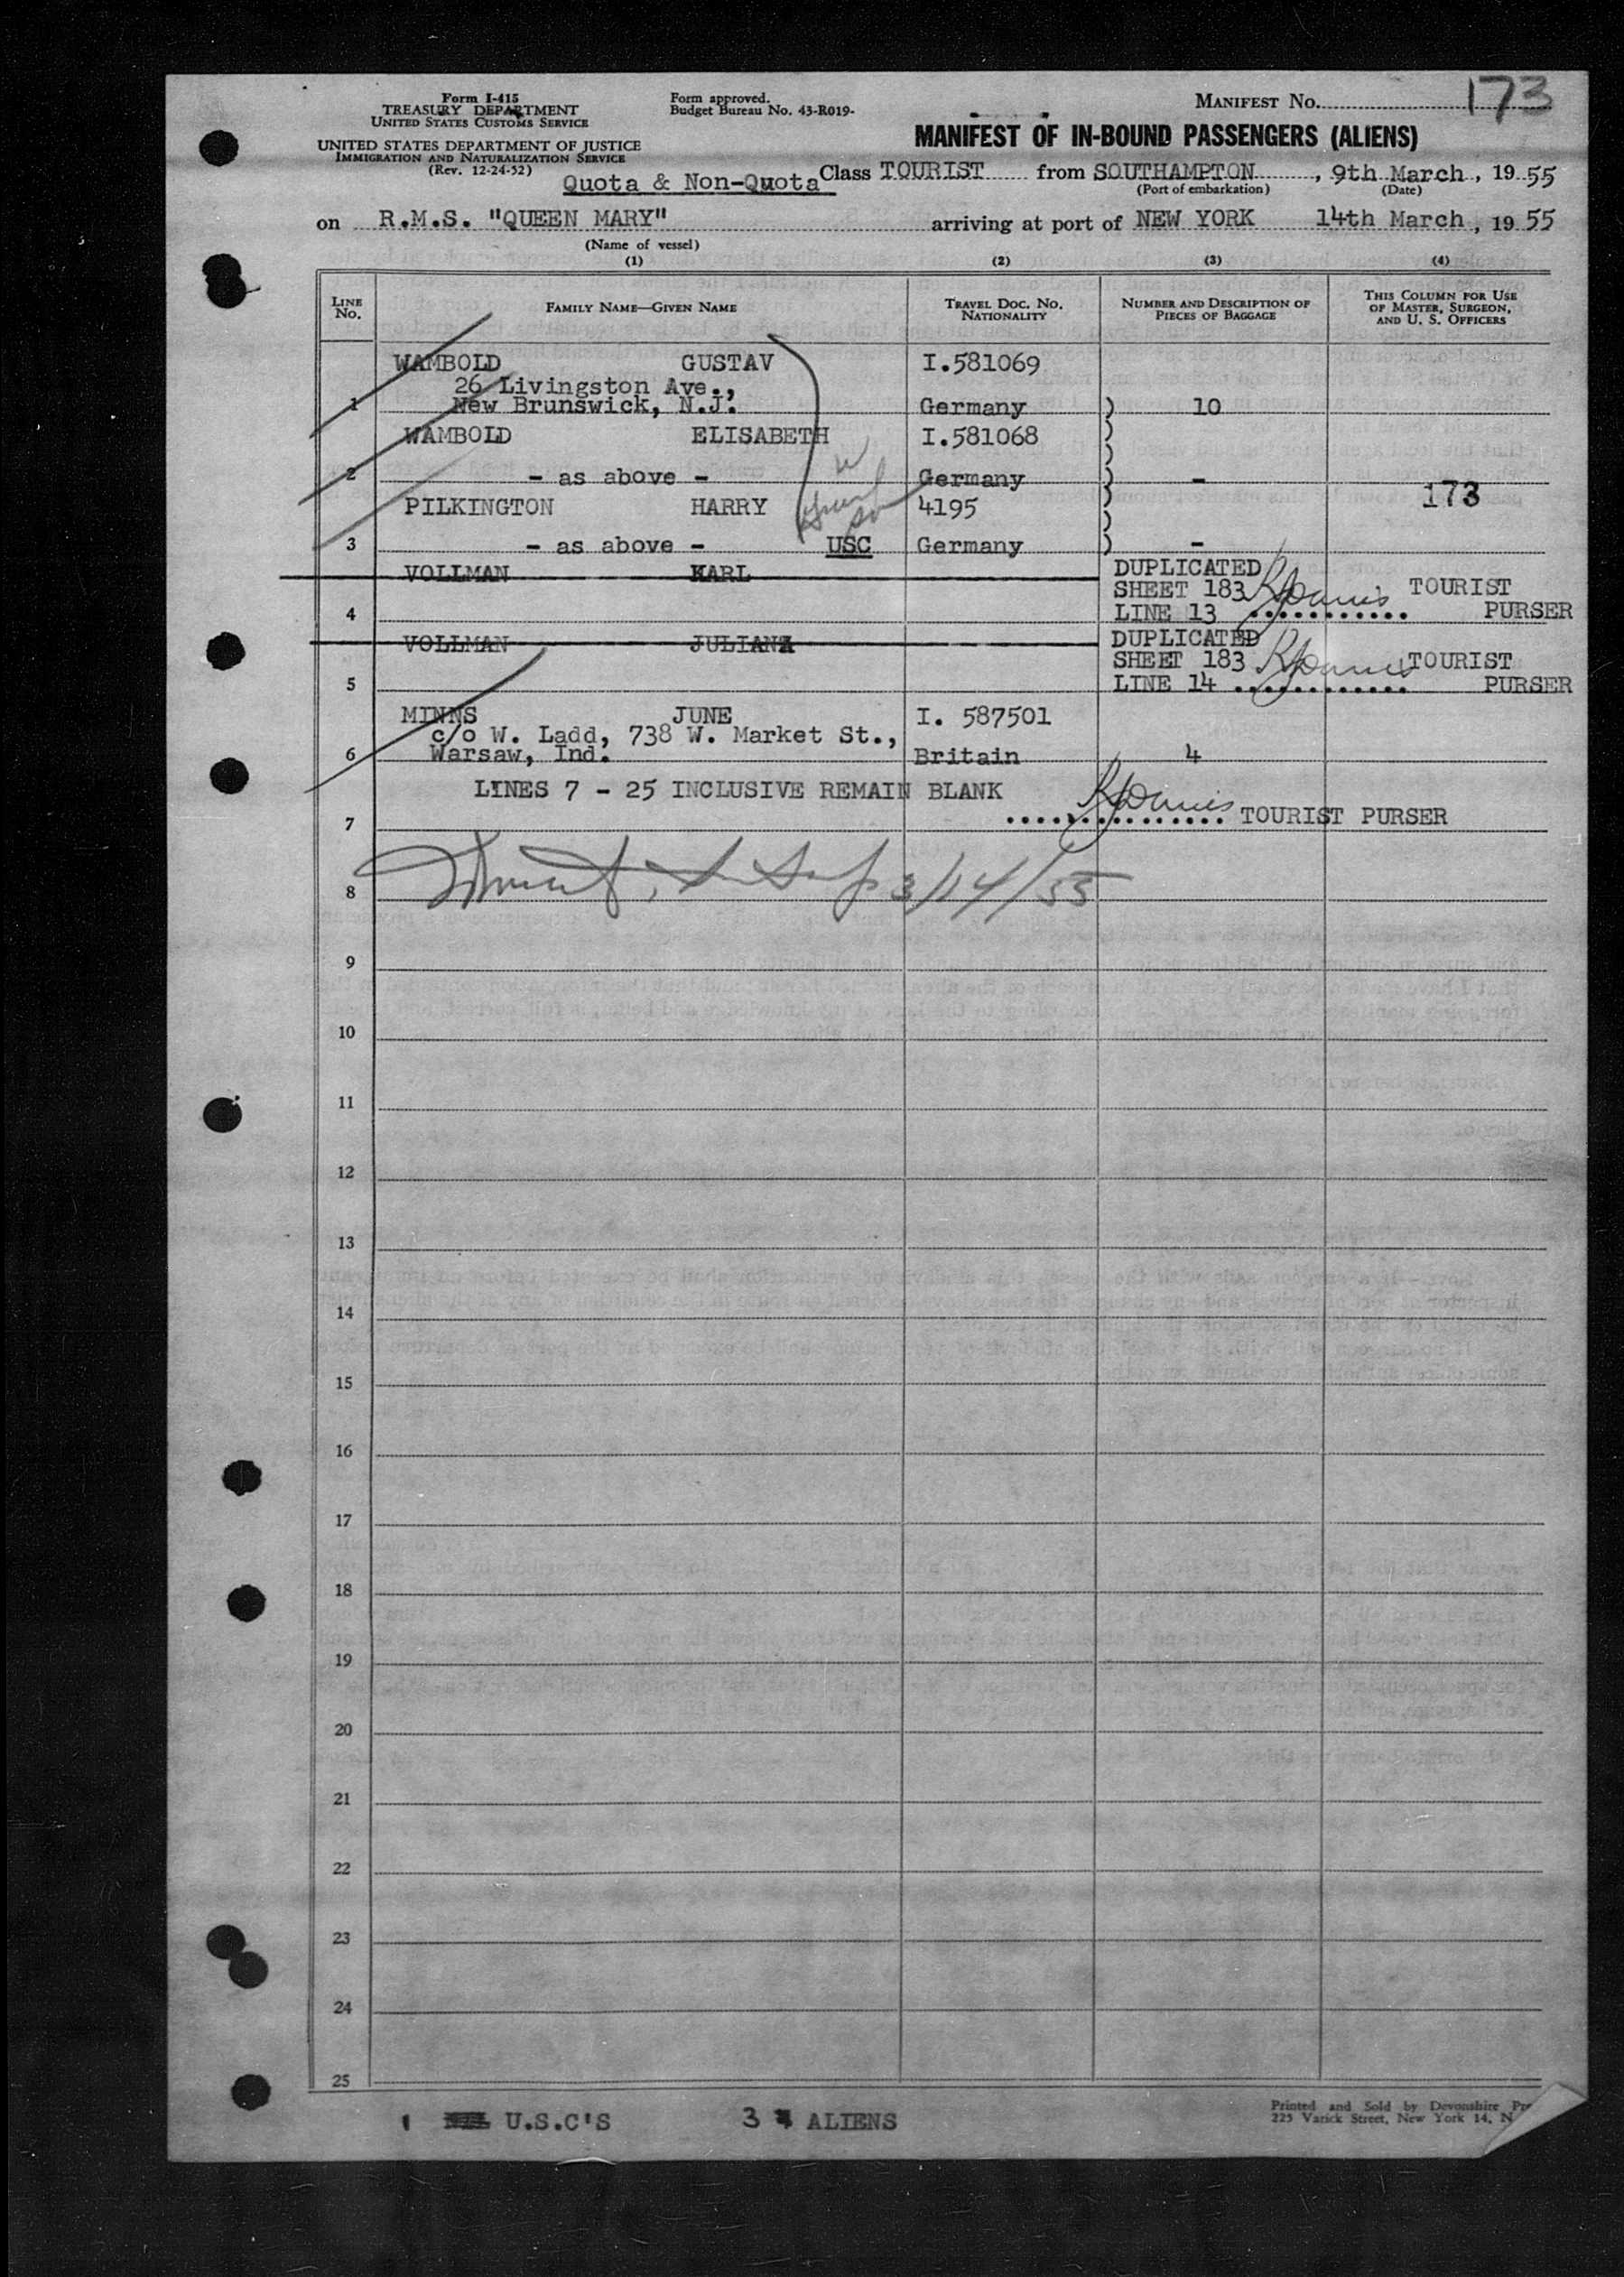 Form I-415
TREASURY DEPARTMENT
UNITED STATES CUSTOMS SERVICE
UNITED STATES DEPARTMENT OF JUSTICE
IMMIGRATION AND NATURALIZATION SERVICE
(Rev. 12-24-52)
Form approved.
Budget Bureau No. 43-R019-
MANIFEST No. 173
MANIFEST OF IN-BOUND PASSENGERS (ALIENS)
Quota & Non-Quota Class TOURIST from SOUTHAMPTON, 9th March, 1955
(Port of embarkation) (Date)
on R.M.S. "QUEEN MARY" arriving at port of NEW YORK 14th March, 1955
(Name of vessel)
(1) (2) (3) (4)
LINE No. FAMILY NAME—GIVEN NAME TRAVEL DOC. No. NATIONALITY NUMBER AND DESCRIPTION OF PIECES OF BAGGAGE THIS COLUMN FOR USE OF MASTER, SURGEON, AND U. S. OFFICERS
WAMBOLD GUSTAV I.581069
26 Livingston Ave.,
1 New Brunswick, N.J. Germany ) 10
WAMBOLD ELISABETH I.581068 )
2 - as above - Germany ) -
PILKINGTON HARRY 4195 ) 173
3 - as above - USC Germany ) -
VOLLMAN KARL DUPLICATED
SHEET 183 TOURIST
4 LINE 13 ............ PURSER
VOLLMAN JULIANA DUPLICATED
SHEET 183 TOURIST
5 LINE 14 ............ PURSER
MINNS JUNE I. 587501
c/o W. Ladd, 738 W. Market St.,
6 Warsaw, Ind. Britain 4
LINES 7 - 25 INCLUSIVE REMAIN BLANK
7 ............... TOURIST PURSER
8 3/14/55
9
10
11
12
13
14
15
16
17
18
19
20
21
22
23
24
25
1 U.S.C'S 3 ALIENS
Printed and Sold by Devonshire
225 Varick Street, New York 14, N